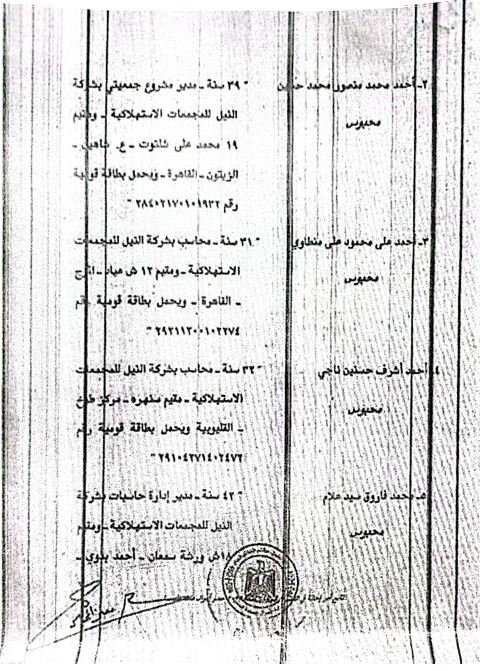 ٢ـ أحمد محمد منصور محمد حسين
" ٣٩ سنة ـ مدير مشروع جمعيتي بشركة
محبوس
النيل للمجمعات الاستهلاكية ـ ومقيم
١٩ محمد على شلتوت ـ ع. شاهين ـ
الزيتون ـ القاهرة ـ ويحمل بطاقة قومية
رقم ٢٨٤٠٢١٧٠١٠١٩٣٢ "
٣ـ أحمد على محمود على منطاوي
" ٣١ سنة ـ محاسب بشركة النيل للمجمعات
محبوس
الاستهلاكية ـ ومقيم ١٢ ش عياد ـ المرج
ـ القاهرة ـ ويحمل بطاقة قومية رقم
٢٩٢١١٢٠٠١٠٢٢٧٤ "
٤ـ أحمد أشرف حسنين ناجي
" ٣٢ سنة ـ محاسب بشركة النيل للمجمعات
محبوس
الاستهلاكية ـ مقيم سنهره ـ مركز طوخ
ـ القليوبية ويحمل بطاقة قومية رقم
٢٩١٠٤٢٧١٤٠٢٤٧٢ "
٥ـ محمد فاروق سيد علام
" ٤٢ سنة ـ مدير إدارة حاسبات بشركة
محبوس
النيل للمجمعات الاستهلاكية ـ ومقيم
١٨ش ورشة سمعان ـ أحمد بدوي ـ